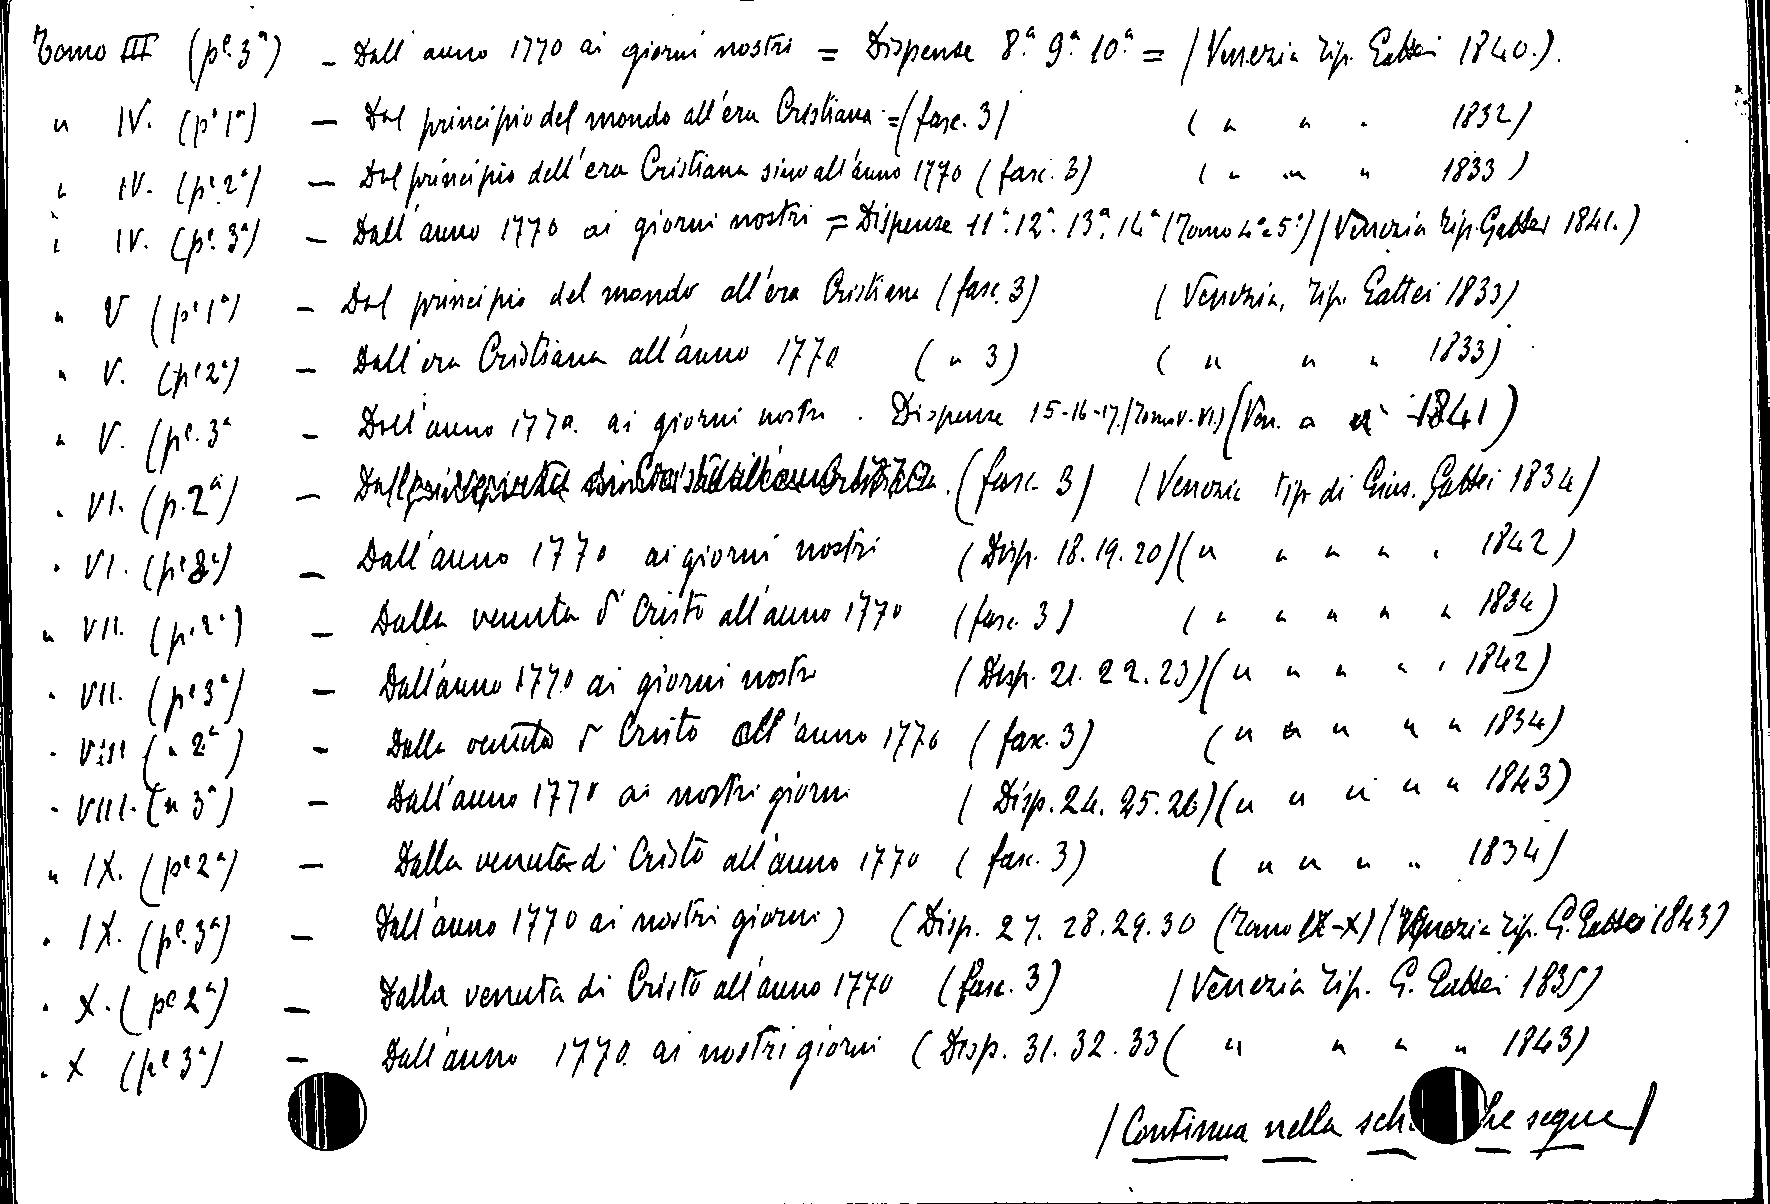 Tomo III (pe. 3a) - Dall'anno 1770 ai giorni nostri = Dispense 8.a 9.a 10.a = (Venezia Tip. Gattei 1840.).
" IV. (pe 1a) - Dal principio del mondo all'era Cristiana = (fasc. 3) ( " " " 1832)
" IV. (pe 2a) - Dal principio dell'era Cristiana sino all'anno 1770 (fasc. 3) ( " " " 1833)
" IV. (pe. 3a) - Dall'anno 1770 ai giorni nostri = Dispense 11a. 12a. 13a. 14a (Tomo 4o e 5o) (Venezia Tip. Gattei 1841.)
" V (pe 1a) - Dal principio del mondo all'era Cristiana (fasc. 3) (Venezia, Tip. Gattei 1833)
" V. (pe 2a) - Dall'era Cristiana all'anno 1770 ( " 3) ( " " " 1833)
" V. (pe. 3a - Dall'anno 1770. ai giorni nostri. Dispense 15-16-17. (Tomo V. VI.) (Ven. " " 1841)
" VI. (p. 2a) - (fasc. 3) (Venezia tip. di Gius. Gattei 1834)
" VI. (pe 3a) - Dall'anno 1770 ai giorni nostri (Disp. 18. 19. 20) ( " " " " " 1842)
" VII. (pe. 2a) - Dalla venuta di Cristo all'anno 1770 (fasc. 3) ( " " " " " 1834)
" VII. (pe 3a) - Dall'anno 1770 ai giorni nostri (Disp. 21. 22. 23) ( " " " " " 1842)
" VIII ( " 2a) - Dalla venuta di Cristo all'anno 1770 (fasc. 3) ( " " " " " 1834)
" VIII. ( " 3a) - Dall'anno 1770 ai nostri giorni (Disp. 24. 25. 26) ( " " " " " 1843)
" IX. (pe 2a) - Dalla venuta di Cristo all'anno 1770 (fasc. 3) ( " " " " 1834)
" IX. (pe. 3a) - Dall'anno 1770 ai nostri giorni) (Disp. 27. 28. 29. 30 (Tomo IX-X) (Venezia Tip. G. Gattei 1843)
" X. (pe 2a) - Dalla venuta di Cristo all'anno 1770 (fasc. 3) (Venezia Tip. G. Gattei 1835)
" X (pe 3a) - Dall'anno 1770. ai nostri giorni (Disp. 31. 32. 33 ( " " " " 1843)
(Continua nella sch he segue)